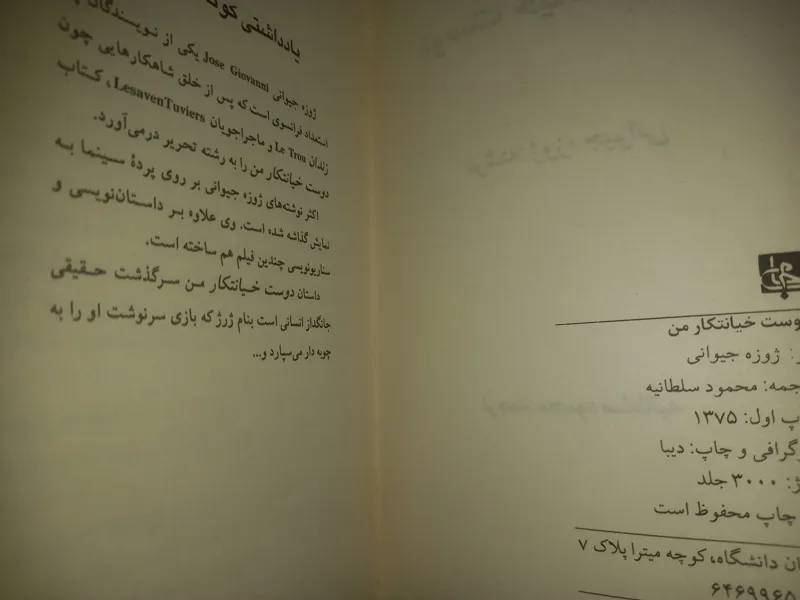 دوست خیانتکار من
ژوزه جیوانی
جمه: محمود سلطانیه
پ اول: ۱۳۷۵
وگرافی و چاپ: دیبا
ژ: ۳۰۰۰ جلد
چاپ محفوظ است
ان دانشگاه، کوچه میترا پلاک ۷
۶۴۶۹۹۶۵
یادداشتی کوتاه
ژوزه جیوانی Jose Giovanni یکی از نویسندگان
استعداد فرانسوی است که پس از خلق شاهکارهایی چون
زندان Le Trou و ماجراجویان LesavenTuviers، کتاب
دوست خیانتکار من را به رشته تحریر درمی‌آورد.
اکثر نوشته‌های ژوزه جیوانی بر روی پردهٔ سینما به
نمایش گذاشه شده است. وی علاوه بر داستان‌نویسی و
سناریونویسی چندین فیلم هم ساخته است.
داستان دوست خیانتکار من سرگذشت حقیقی
جانگداز انسانی است بنام ژرژ که بازی سرنوشت او را به
چوبه دار می‌سپارد و...